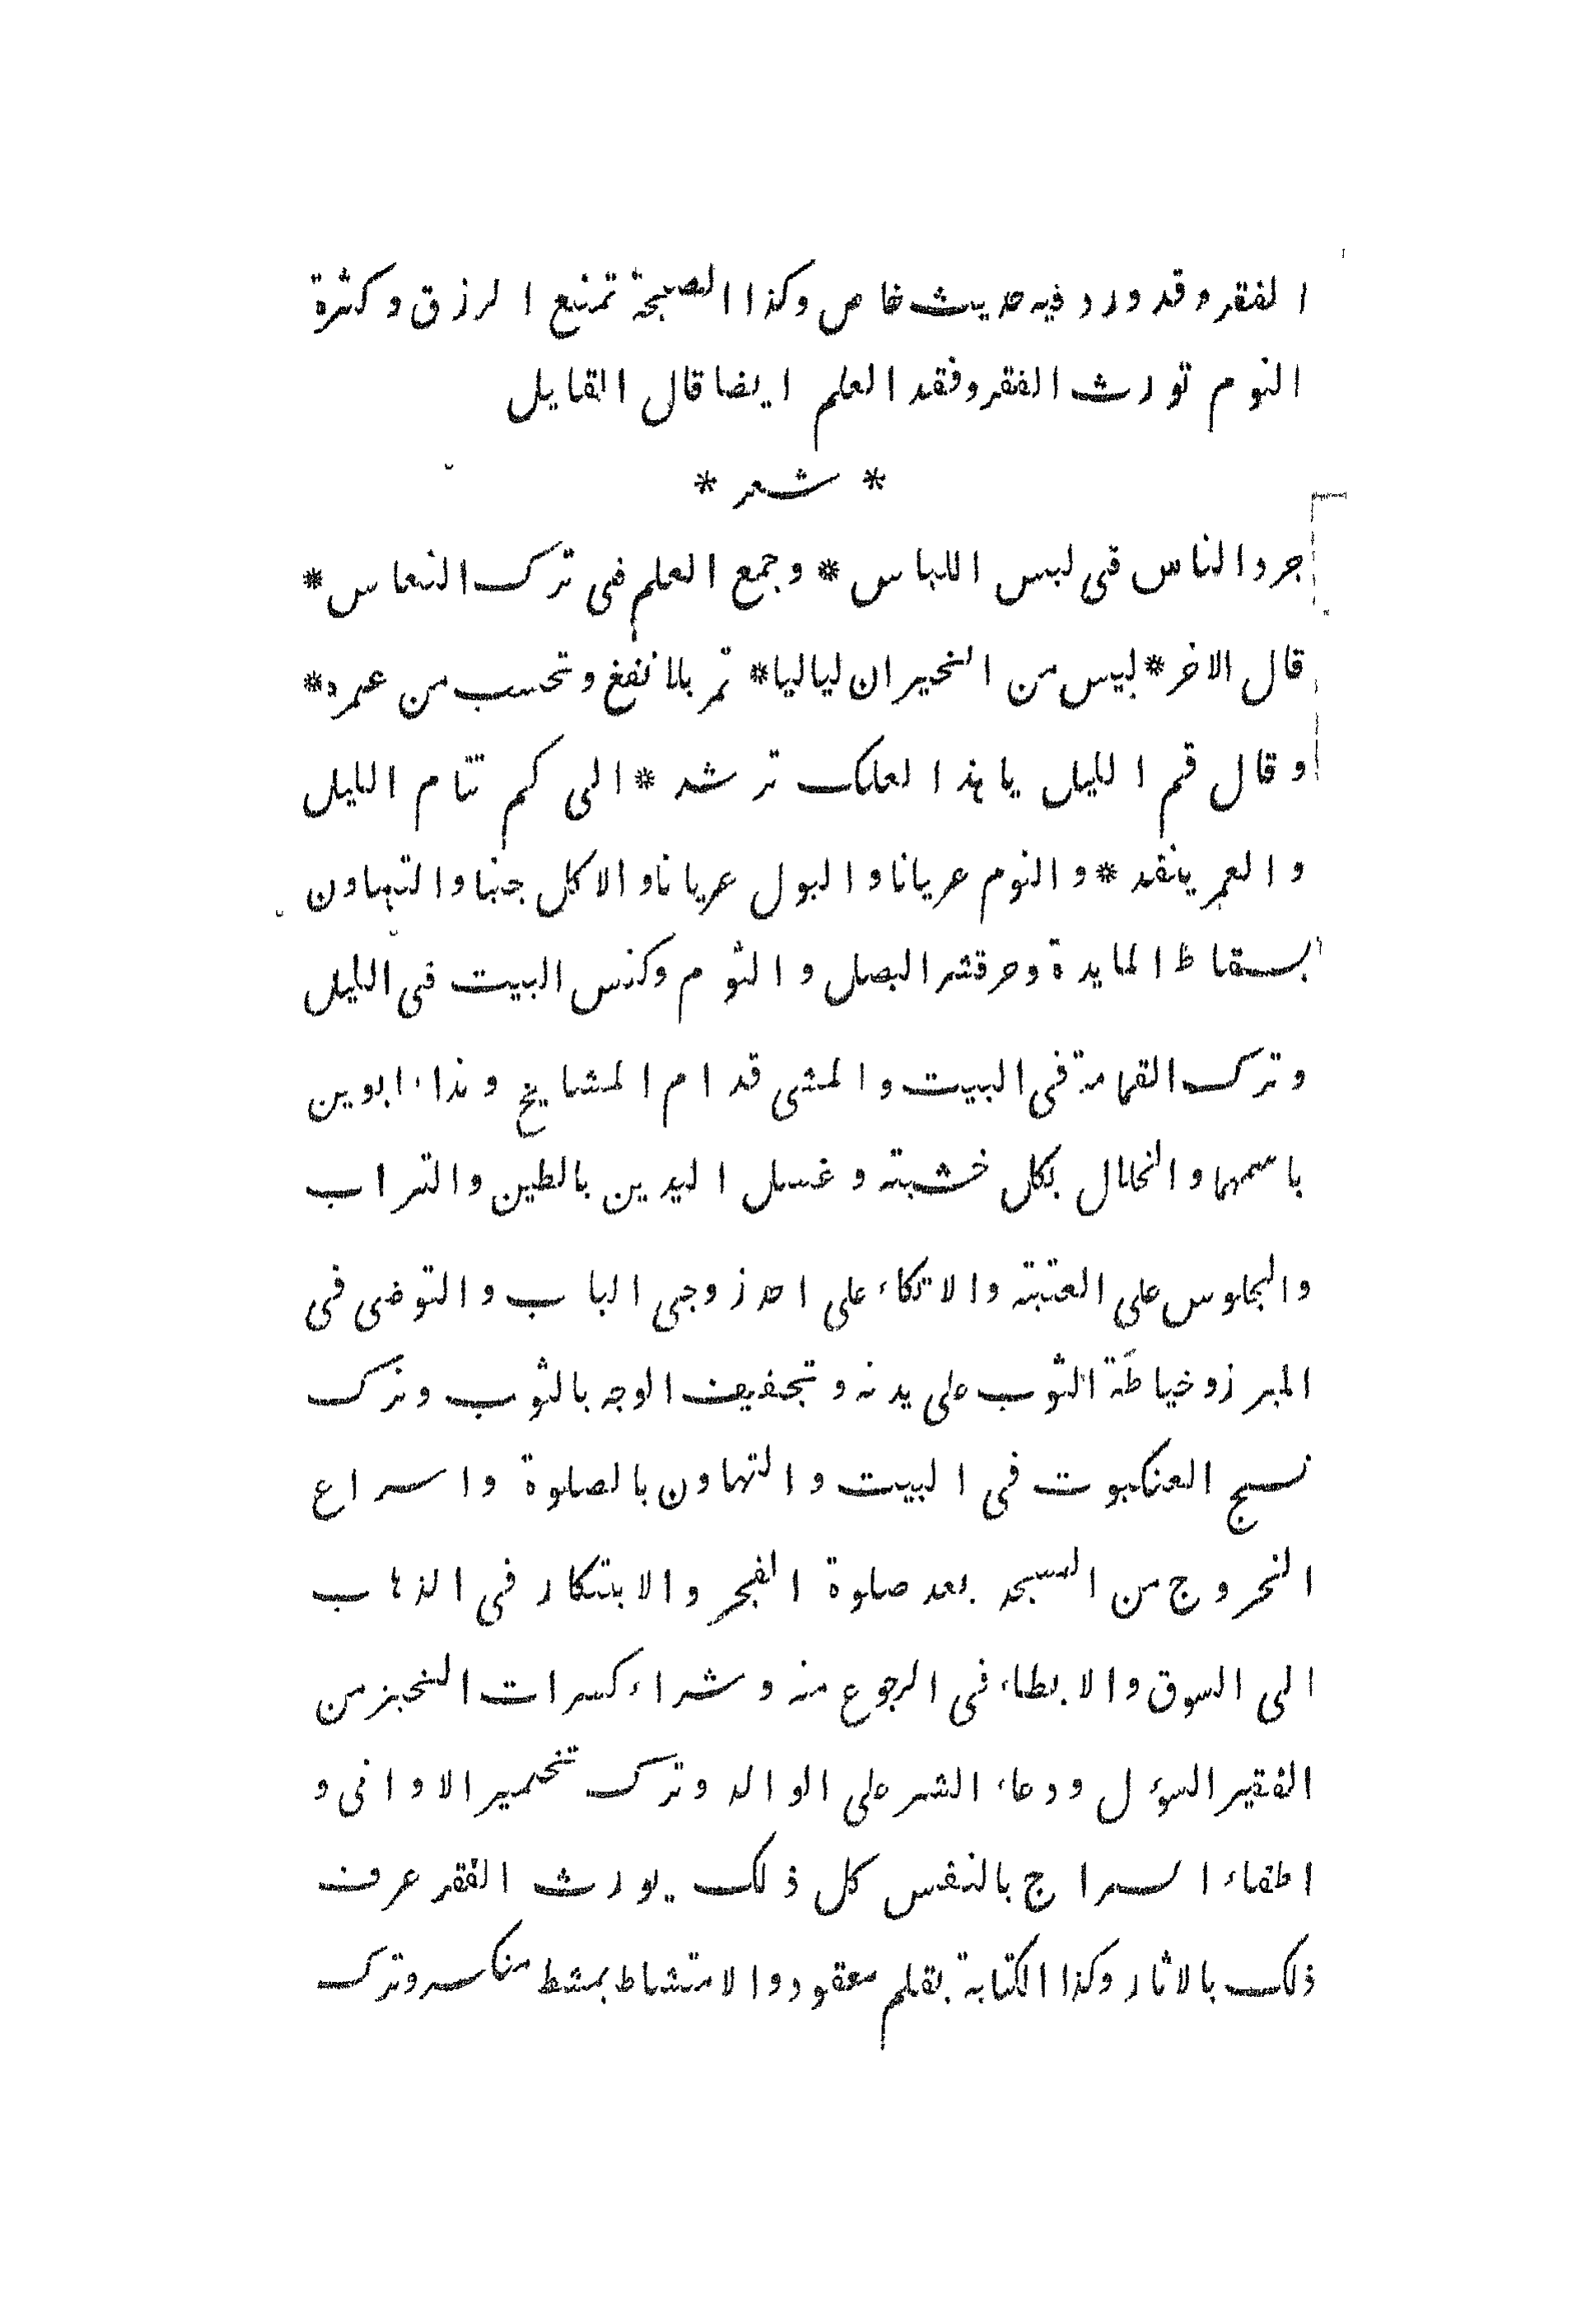 الفقر وقد ورد فيه حديث خاص وكذا الصبحة تمنع الرزق وكثرة
النوم تورث الفقر وفقد العلم ايضا قال القايل
* شعر *
جرد الناس فى لبس اللباس * وجمع العلم فى ترك النعاس *
قال الاخر * ليس من الخير ان لياليا * تمر بلا نفغ وتحسب من عمرد *
وقال قم الليل يا هذا لعلك ترشد * الى كم تنام الليل
والعمر ينقد * والنوم عريانا والبول عريانا والاكل جنبا والتهاون
بسقاط المايدة وحرقشر البصل والثوم وكنس البيت فى الليل
وترك القمامة فى البيت والمشى قدام المشايخ ونداء ابوين
باسمهما والخلال بكل خشبته وغسل اليدين بالطين والتراب
والجلوس على العتبته والاتكاء على احد زوجى الباب والتوضى فى
المبرز وخياطة الثوب على يدنه وتجفيف الوجه بالثوب وترك
نسج العنكبوت فى البيت والتهاون بالصلوة واسراع
الخروج من المسجد بعد صلوة الفجر والابتكار فى الذهاب
الى السوق والابطاء فى الرجوع منه وشراء كسرات الخبز من
الفقير السؤل ودعاء الشر على الوالد وترك تخمير الاوانى و
اطفاء السراج بالنفس كل ذلك يورث الفقر عرف
ذلك بالاثار وكذا الكتابة بقلم معقود والامتشاط بمشط منكسر وترك